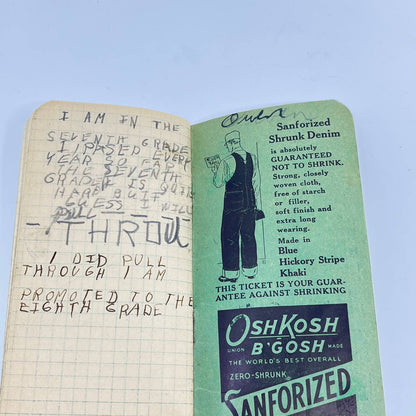 I AM IN THE
SEVENTH GRADE
I PASED EVERY
YEAR SO FAR
THE SEVENTH
GRADE IS QUITE
HARD BUT I
GUESS I WILL
PULL
- THROU
I DID PULL
THROUGH I AM
PROMOTED TO THE
EIGHTH GRADE
Sanforized
Shrunk Denim
is absolutely
GUARANTEED
NOT TO SHRINK.
Strong, closely
woven cloth,
free of starch
or filler,
soft finish and
extra long
wearing.
Made in
Blue
Hickory Stripe
Khaki
THIS TICKET IS YOUR GUAR-
ANTEE AGAINST SHRINKING
OSHKOSH
UNION B'GOSH MADE
THE WORLD'S BEST OVERALL
ZERO-SHRUNK
SANFORIZED